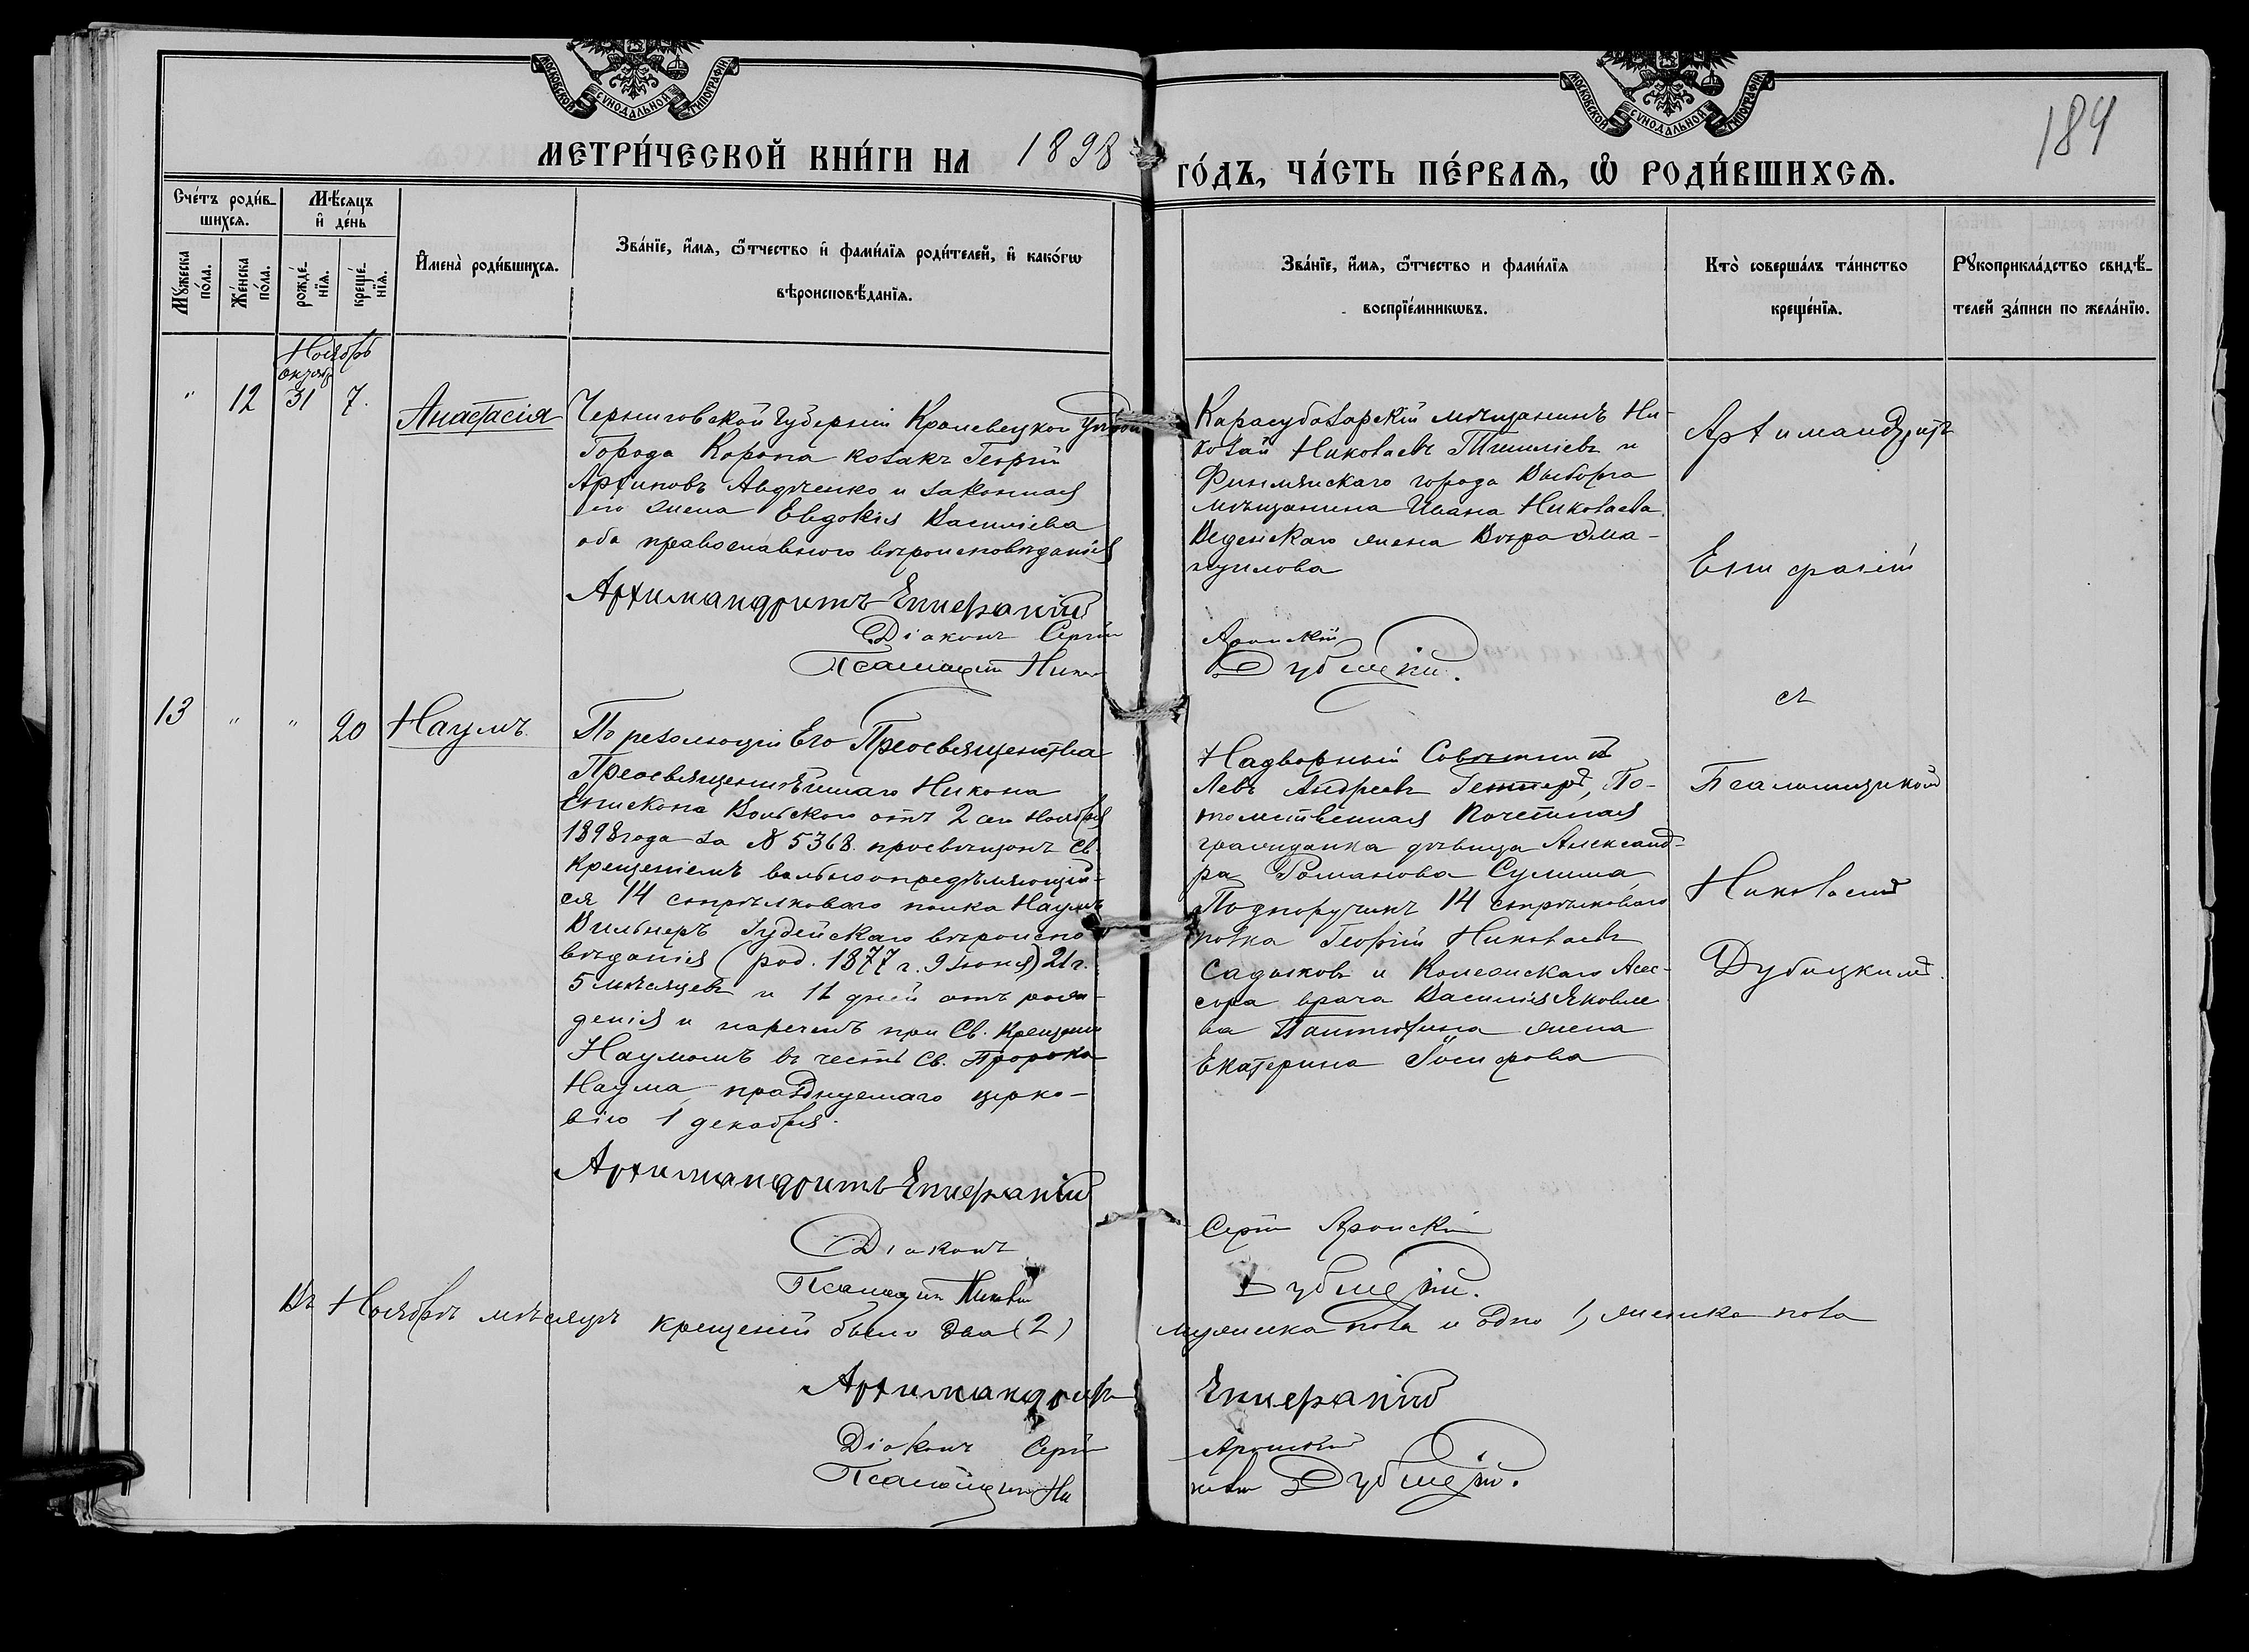 МОСКОВСКОЙ СѴНОДАЛЬНОЙ ТИПОГРАФІИ
МОСКОВСКОЙ СѴНОДАЛЬНОЙ ТИПОГРАФІИ
184
МЕТРИ́ЧЕСКОЙ КНИ́ГИ НА 1898 ГО́ДЪ, ЧА́СТЬ ПЕ́РВАѦ, Ѡ҆ РОДИ́ВШИХСѦ.
Сче́тъ роди́в-
шихсѧ.
Мѣ́сѧцъ
и҆ де́нь
Мꙋ́жеска
по́ла.
Же́нска
по́ла.
рожде́-
нїѧ.
креще́-
нїѧ.
И҆мена̀ роди́вшихсѧ.
Зва́нїе, и҆́мѧ, ѻ҆́тчество и҆ фами́лїѧ роди́телей, и҆ како́гѡ
вѣроисповѣ́данїѧ.
Зва́нїе, и҆́мѧ, ѻ҆́тчество и фами́лїѧ
воспрїе́мникѡвъ.
Кто̀ соверша́лъ та́инство
креще́нїѧ.
Рꙋкоприкла́дство свидѣ́-
телей за́писи по жела́нїю.
Ноябрь
октяб
" 12 31 7.
Анастасія
Черниговской Губерніи Кролевецкого уѣзда
Города Коропа козакъ Георгій
Архиповъ Авдѣенко и законная
его жена Евдокія Василіева
оба православного вѣроисповѣданія
Архимандритъ Епифаній
Діаконъ Сергій
Псаломщ. Никол
Карасубазарскій мѣщанинъ Ни-
колай Николаевъ и
Финляндскаго города Выборга
мѣщанина Ивана Николаева
жена Вѣра
Архимандритъ
Епифаній
Аронскій
Дубицкій.
съ
13 " " 20 Наумъ
По резолюціи Его Преосвященства
Преосвященнѣйшаго Никона
Епископа Вольского отъ 2 сего Ноября
1898 года за № 5368 просвѣщонъ Св.
Крещеніемъ вольноопредѣляющій-
ся 14 стрѣлковаго полка Наумъ
Вильнеръ Іудейскаго вѣроиспо-
вѣданія (род. 1877 г. 9 Іюня) 21 г.
5 мѣсяцевъ и 11 дней отъ рож-
денія и нареченъ при Св. Крещеніи
Наумомъ въ честь Св. Пророка
Наума, празднуемаго церко-
вію 1 декабря.
Надворный Совѣтникъ
Левъ Андреевъ По-
томственная Почетная
гражданка дѣвица Александ-
ра Романова Сулима
Подпоручикъ 14 стрѣлковаго
полка Георгій Николаевъ
Садыковъ и Колежскаго Асес-
сора врача Василія Яковле
ва Пантюхина жена
Екатерина Іосифова
Псаломщикомъ
Николаемъ
Дубицкимъ.
Архимандритъ Епифаній
Діаконъ Сергій Аронскій
Псаломщикъ Николай Дубицкій.
Въ Ноябрѣ мѣсяцѣ крещеній было два (2) мужеска пола и одно 1, женска пола
Архимандритъ Епифаній
Діаконъ Сергій Аронскій
Псаломщикъ Николай Дубицкій.